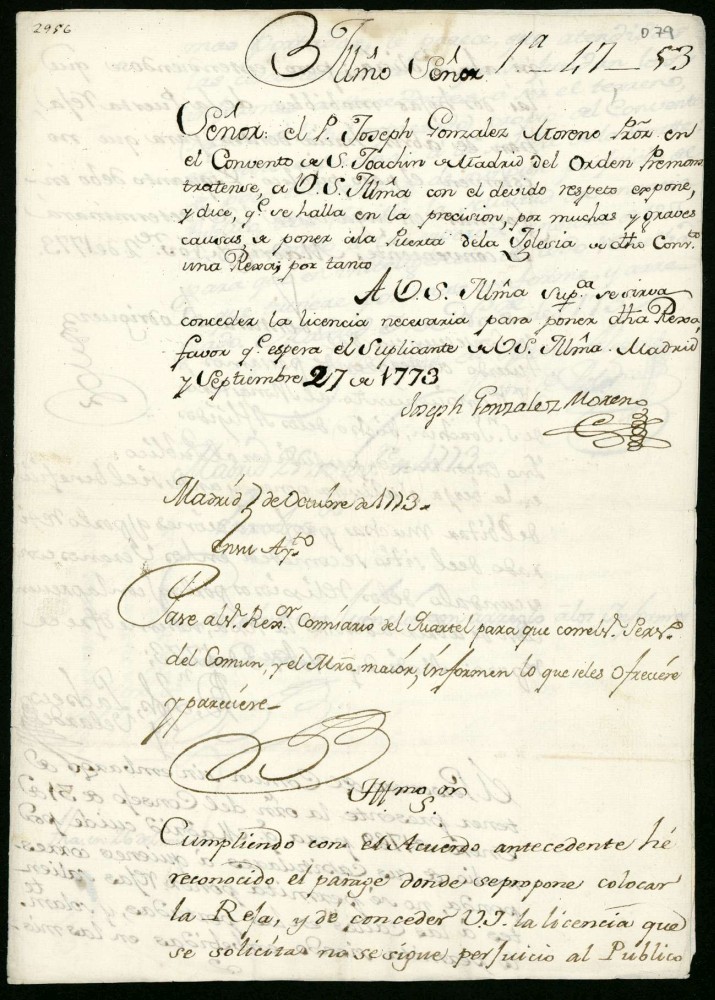 2956
D 79
Illmo Señor. 1a 47 53
Señor: el P. Joseph Gonzalez Moreno Prior en
el Convento de S. Joachin de Madrid del Orden Premons
tratense, a V. S. Illma con el devido respeto expone,
y dice, qe. se halla en la precision, por muchas y graves
causas, de poner ala Puerta dela Yglesia de dho Convto.
una Rexa; por tanto
A V. S. Illma supca. se sirva
conceder la licencia necesaria para poner dha Rexa
favor qe. espera el Suplicante de V. S. Illma. Madrid
y Septiembre 27 de 1773
Joseph Gonzalez Moreno
Madrid 7 de Octubre de 1773.
en su Ayto
Pase al Sr. Rexor. Comisario del Quartel para que con el Sr.
del Comun, y el Mro. maior, informen lo que seles ofreciére
y pareciere
Illmo Sor
Cumpliendo con el Acuerdo antecedente hé
reconocido el parage donde sepropone colocar
la Reja, y de conceder V.I. la licencia que
se solicita no se sigue perjuicio al Publico